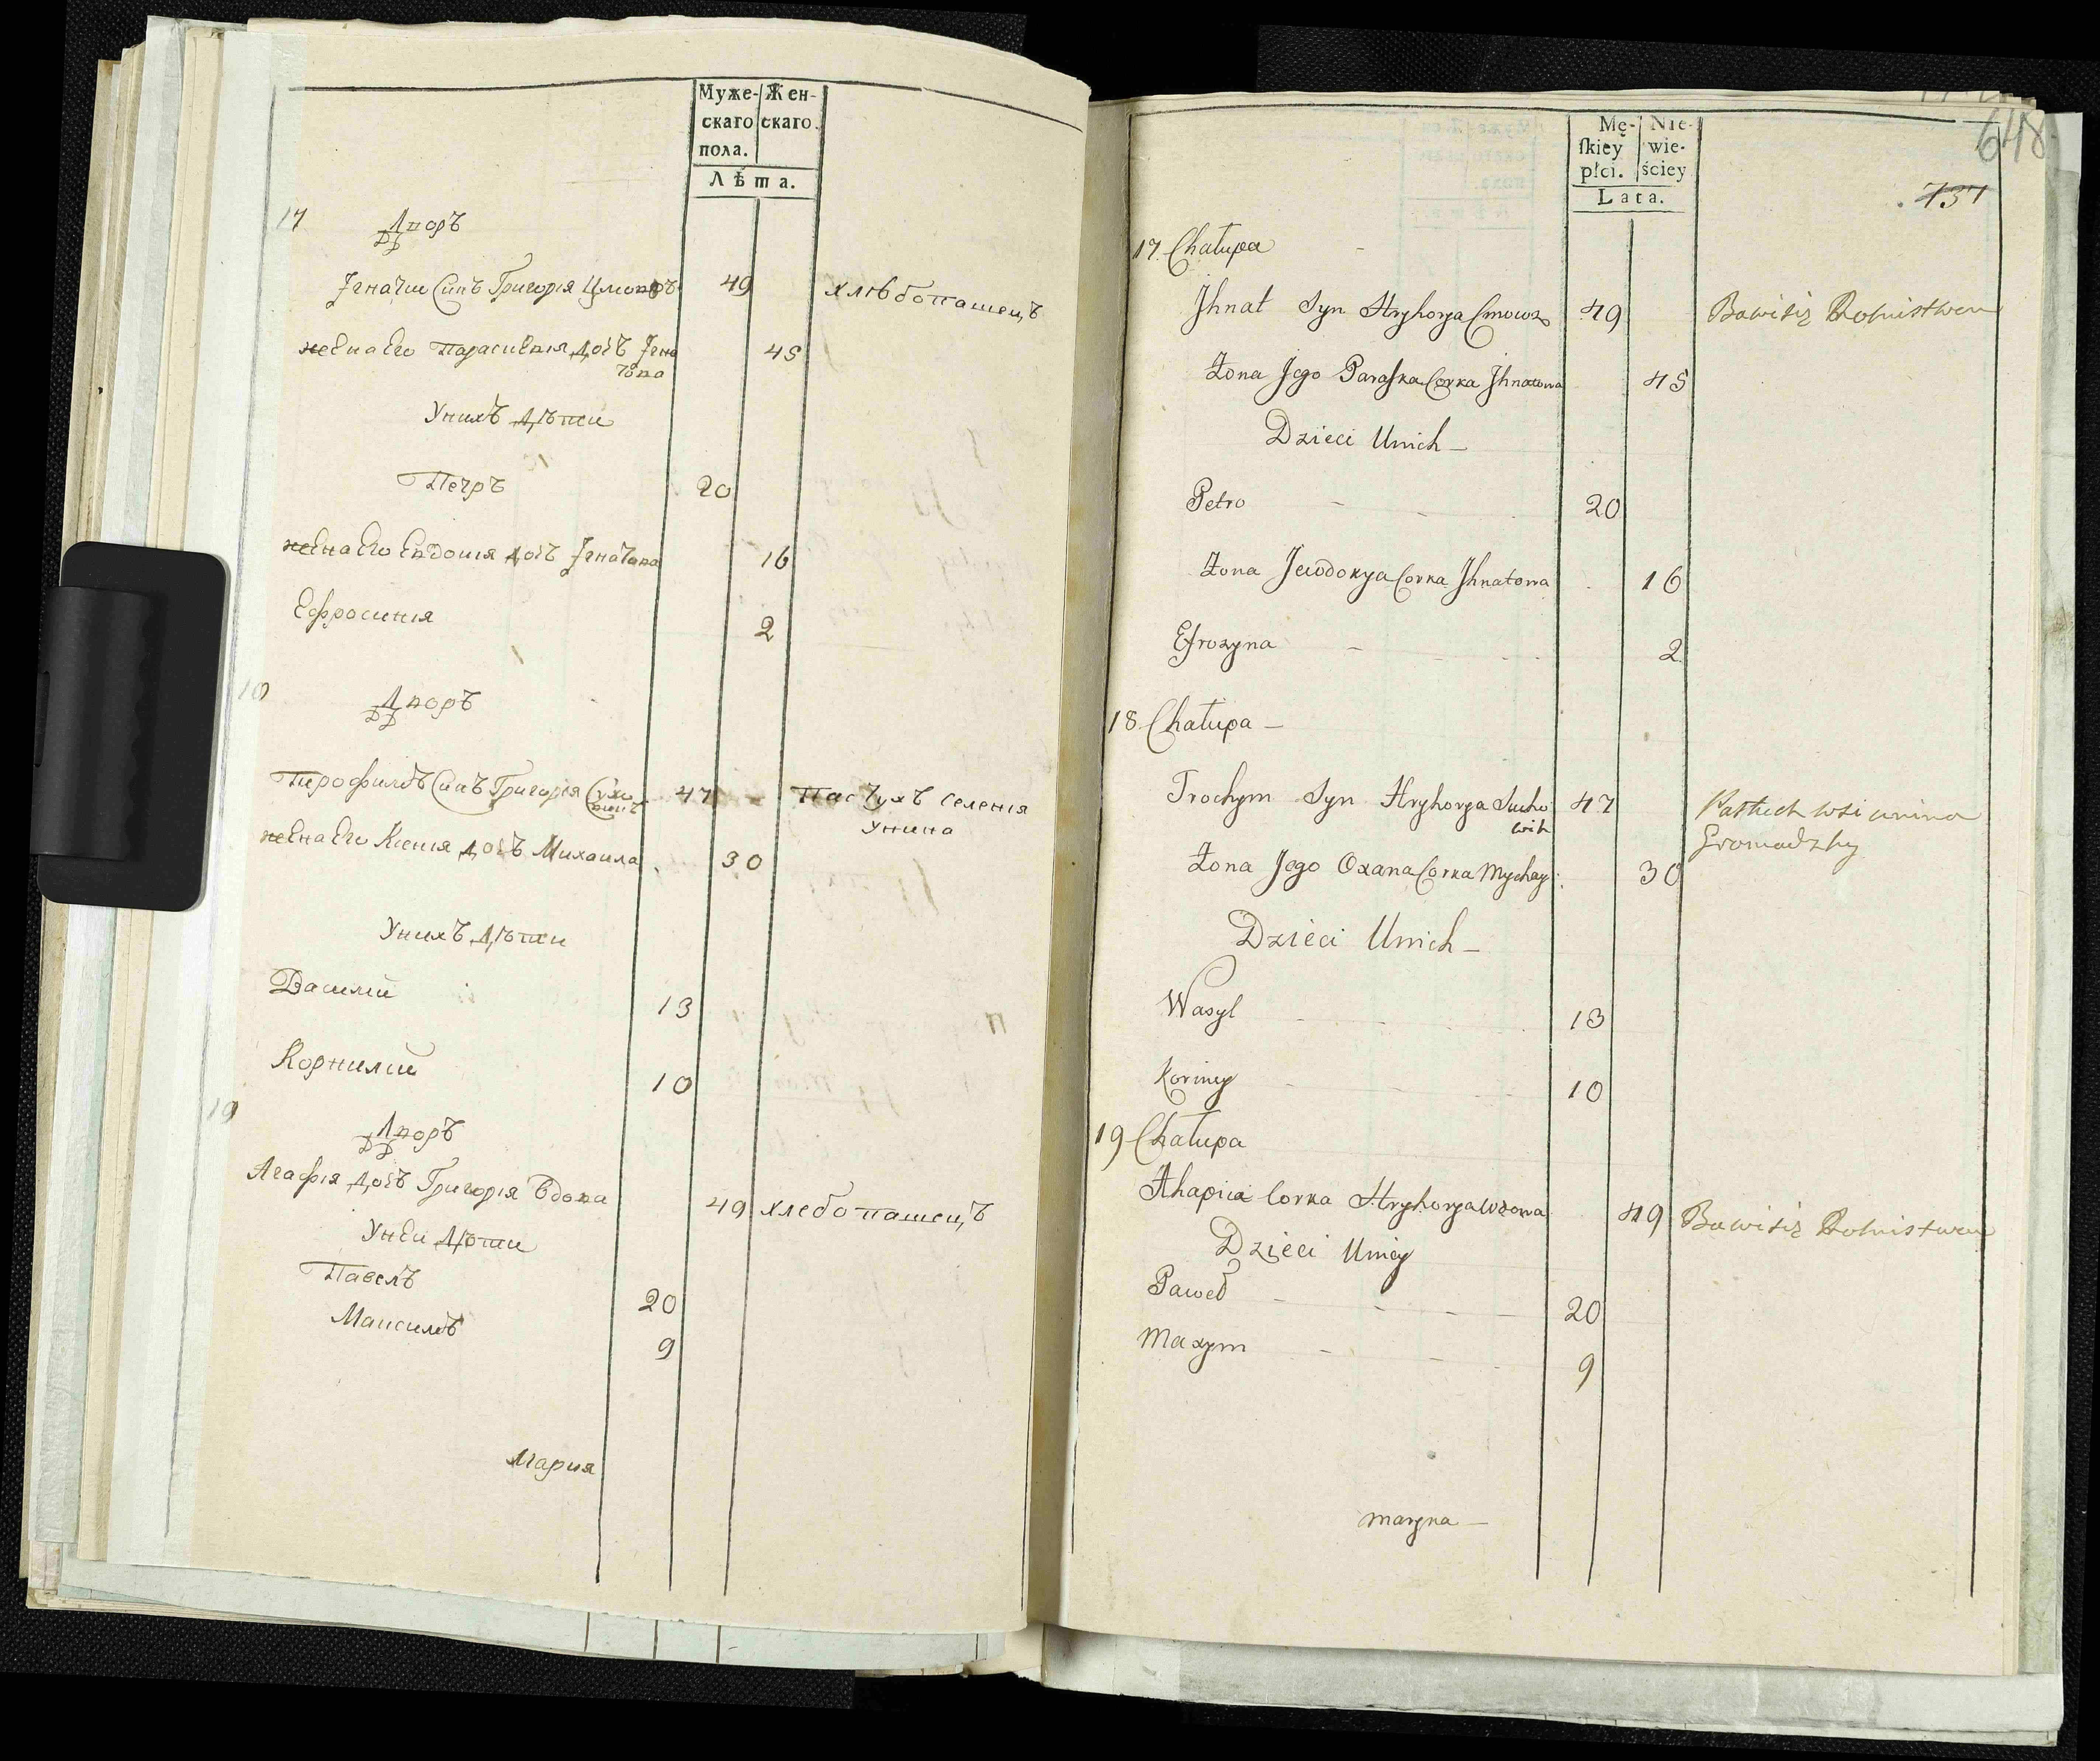 Муже- Жен-
скаго скаго.
пола.
Лѣта.
17 Дворъ
Игнатій Синъ Григорія 49 хлѣбопашецъ
жена Его Параскевія дочъ Игна
това 45
Унихъ дѣти
Петръ 20
жена Его Евдокія дочъ Игнатова 16
Ефросинія 2
18 Дворъ
Трофимъ Синъ Григорія 47 Пастухъ Селенія
Унина
жена Его Ксенія дочъ Михаила 30
Унихъ дѣти
Василій 13
Корнилій 10
19 Дворъ
Агафія дочъ Григорія Вдова 49 хлебопашецъ
Унеи дѣти
Павелъ 20
Максимъ 9
Мария
648
737
Mę- Nie-
ſkiey wie-
płci. ściey
Lata.
17 Chałupa
Jhnat Syn Hryhorya 49 Bawi się Rolnistwem
Żona Jego Paraska Corka Jhnatowa 45
Dzieci Unich
Petro 20
Żona Jewdokya Corka Jhnatowa 16
Efrozyna 2
18 Chałupa
Trochym Syn Hryhorya Sucho
wih 47 Pastuch wsi unina
Gromadzky
Żona Jego Oxana Corka Mychay: 30
Dzieci Unich
Wasyl 13
Korniey 10
19 Chałupa
Ahapia Corka Hryhorya wdowa 49 Bawi się Rolnistwem
Dzieci Uniey
Paweł 20
Maxym 9
maryna